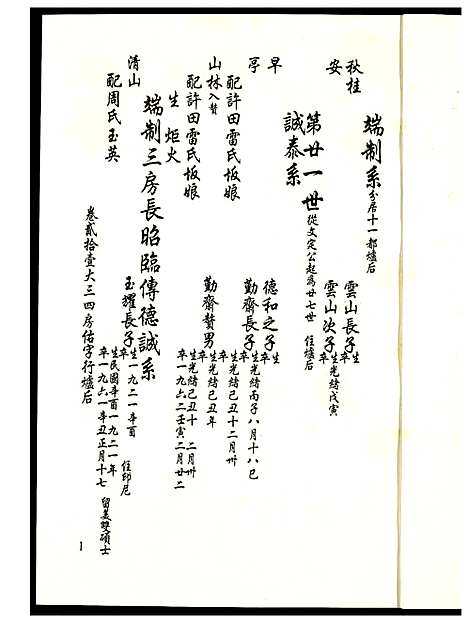 端制系 分居十一都爐后
秋桂 雲山長子 生 卒
安 雲山次子 生光緒戊寅 卒
第廿一世 從文定公起為廿七世 住爐后
誠泰系
早 德和之子 生 卒
亭 勤齋長子 生光緒丙子八月十八巳 卒
配許田雷氏坂娘 生光緒己丑十二月卅 卒
山林入贅 勤齋贅男 生光緒己丑年 卒
配許田雷氏坂娘 生光緒己丑十二月卅 卒一九六二壬寅二月廿二
生炬火
端制三房長昭臨傳德誠系
清山 玉耀長子 生一九二一辛酉 卒 住印尼
配周氏玉英 生民國辛酉一九二一年 卒一九六一辛丑正月十七 留美雙碩士
卷貳拾壹大三四房佑字行爐后
1